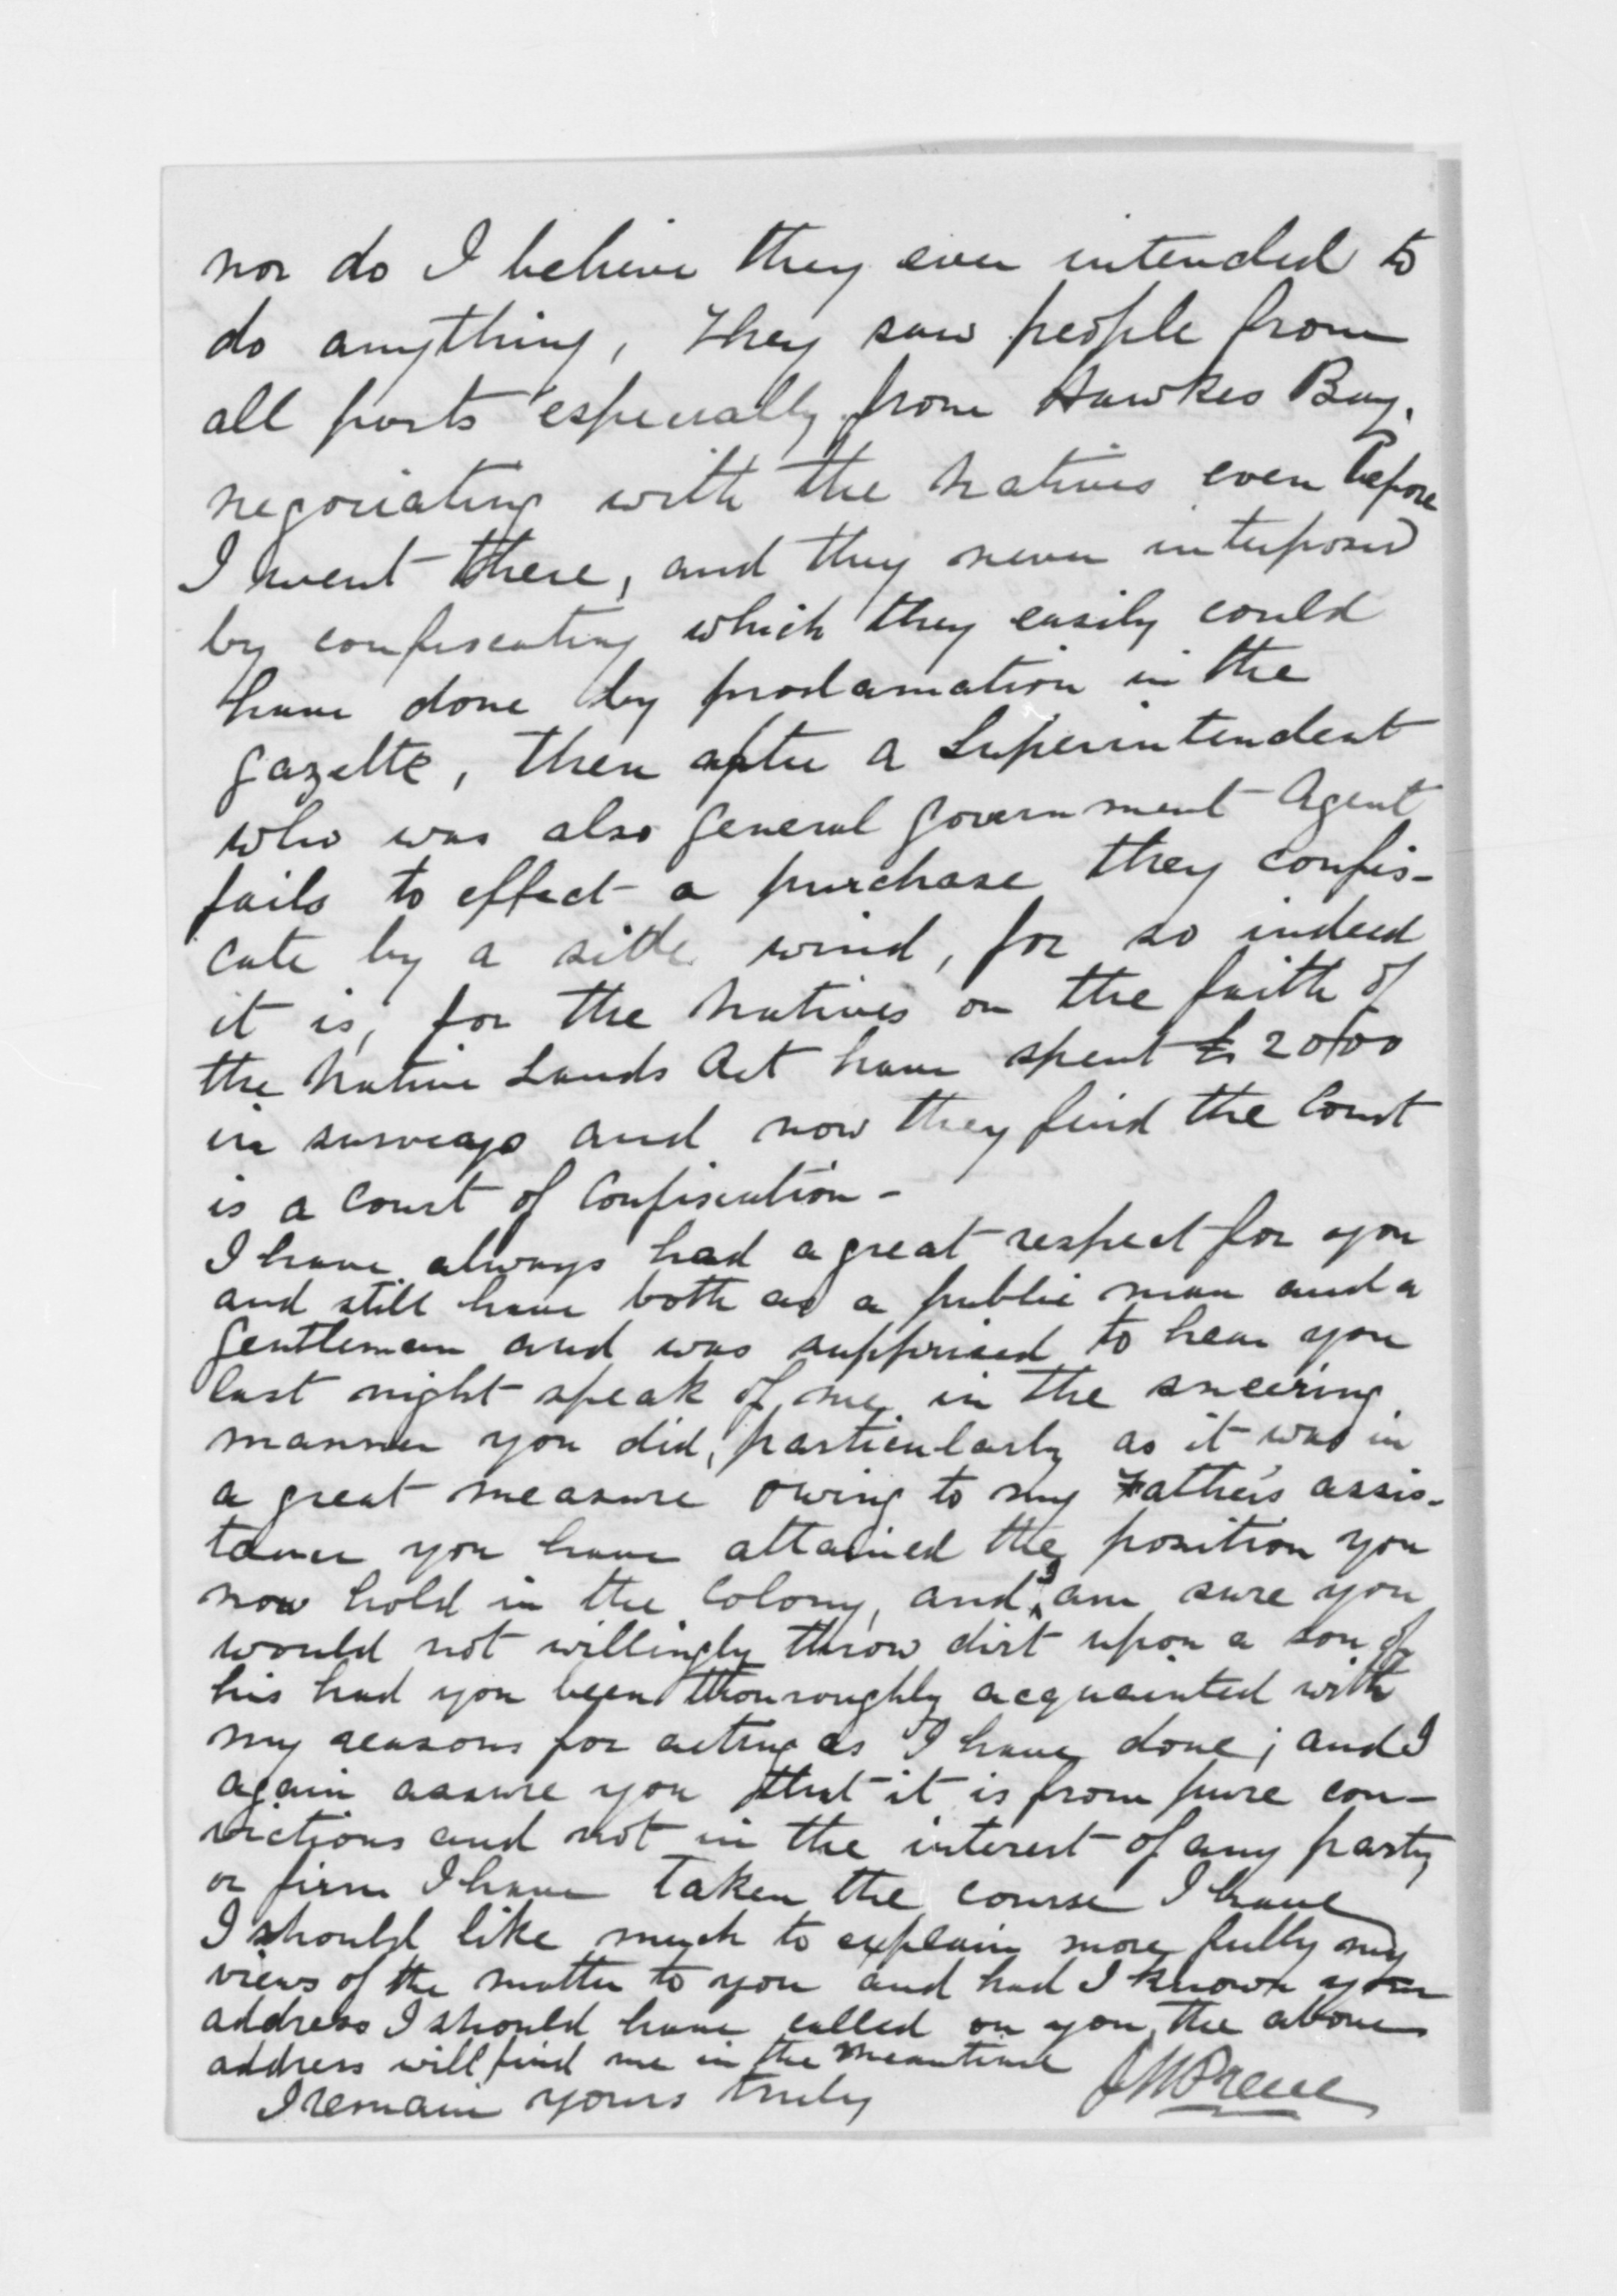 nor do I believe they ever intended to
do anything, they saw people from
all parts especially from Hawkes Bay.
negociating with the natives even before
I went there, and they never interposed
by confiscating which they easily could
have done by proclamation in the
gazette, then after a Superintendent
who was also General Government Agent
fails to effect a purchase they confis-
cate by a side wind, for so indeed
it is, for the natives on the faith of
the Native Lands Act have spent £2000
in surveys and now they find the Court
is a Court of Confiscation -
I have always had a great respect for you
and still have both as a public man and a
gentleman and was supprised to hear you
last night speak of me in the sneering
manner you did, particularly as it was in
a great measure owing to my Father's assis-
tance you have attained the position you
now hold in the Colony, and I am sure you
would not willingly throw dirt upon a son of
his had you been thouroughly acquainted with
my reasons for acting as I have done; and I
again assure you that it is from pure con-
victions and not in the interest of any party
or firm I have taken the course I have
I should like much to explain more fully my
views of the matter to you and had I known your
address I should have called on you, the above
address will find me in the meantime
I remain yours truly